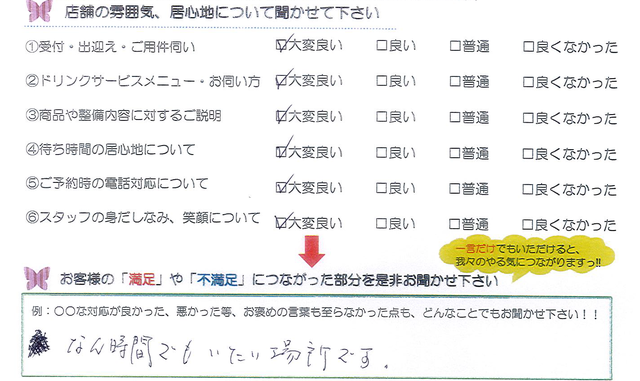 店舗の雰囲気、居心地について聞かせて下さい
①受付・出迎え・ご用件伺い ☑大変良い □良い □普通 □良くなかった
②ドリンクサービスメニュー・お伺い方 ☑大変良い □良い □普通 □良くなかった
③商品や整備内容に対するご説明 ☑大変良い □良い □普通 □良くなかった
④待ち時間の居心地について ☑大変良い □良い □普通 □良くなかった
⑤ご予約時の電話対応について ☑大変良い □良い □普通 □良くなかった
⑥スタッフの身だしなみ、笑顔について ☑大変良い □良い □普通 □良くなかった
一言だけでもいただけると、
我々のやる気につながりますっ!!
お客様の「満足」や「不満足」につながった部分を是非お聞かせ下さい
例：〇〇な対応が良かった、悪かった等、お褒めの言葉も至らなかった点も、どんなことでもお聞かせ下さい！！
なん時間でもいたい場所です.